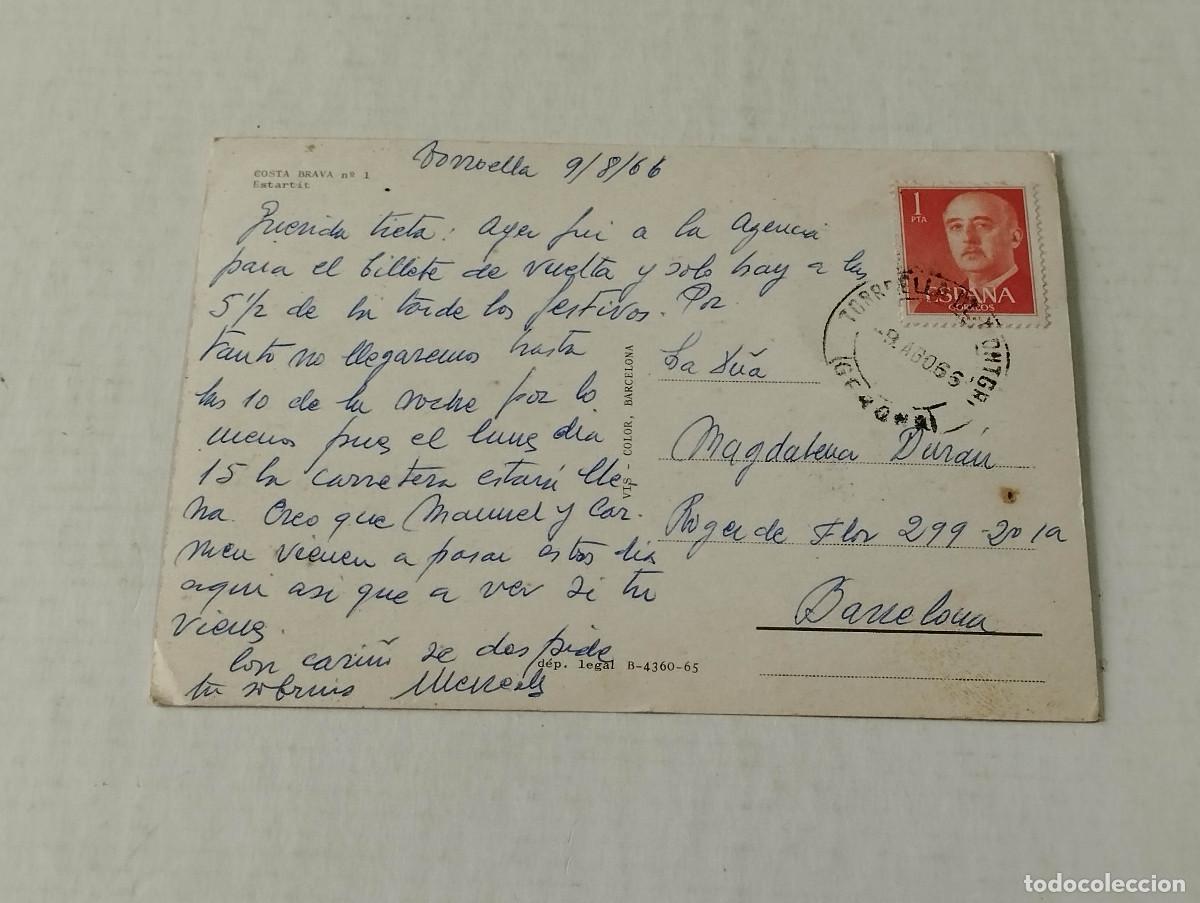 COSTA BRAVA nº 1
Estartit
Torroella 9/8/66
Querida tieta: ayer fui a la agencia
para el billete de vuelta y solo hay a las
5 1/2 de la tarde los festivos. Por
tanto no llegaremos hasta
las 10 de la noche por lo
menos pues el lunes dia
15 la carretera estará lle
na. Creo que Manuel y Car.
men vienen a pasar estos dia
aqui asi que a ver si tu
vienes.
Con cariño se despide
tu sobrina Mercedes
VIS - COLOR, BARCELONA
dép. legal B-4360-65
1
PTA
ESPAÑA
CORREOS
TORROELLA DE MONTGRI
AGO 66
(GERONA)
Magdalena Durán
Roger de Flor 299-2º 1ª
Barcelona
todocoleccion